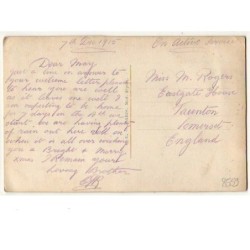 7th Dec 1915
On Active Service
Dear May
Just a line in answer to
your welcome letter pleased
to hear you are well
as it leaves me well I
am expecting to be home
for 7 days on the 18th or
about. We are having plenty
of rain out here still roll on
when it is all over wishing
you a Bright & Merry
Xmas I Remain your
loving Brother
Miss M. Rogers
Eastgate House
Taunton
Somerset
England